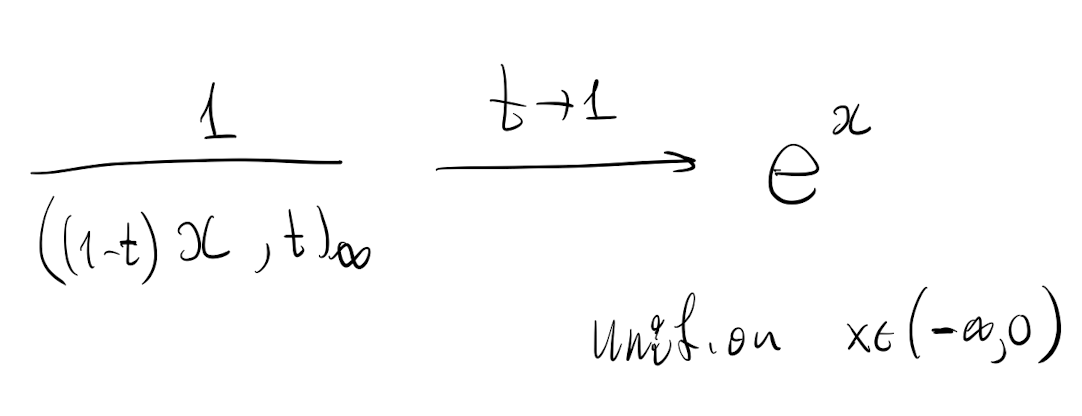 \frac{1}{((1-t)x, t)_\infty} \xrightarrow{t \to 1} e^x
unif. on x∈(-∞,0)